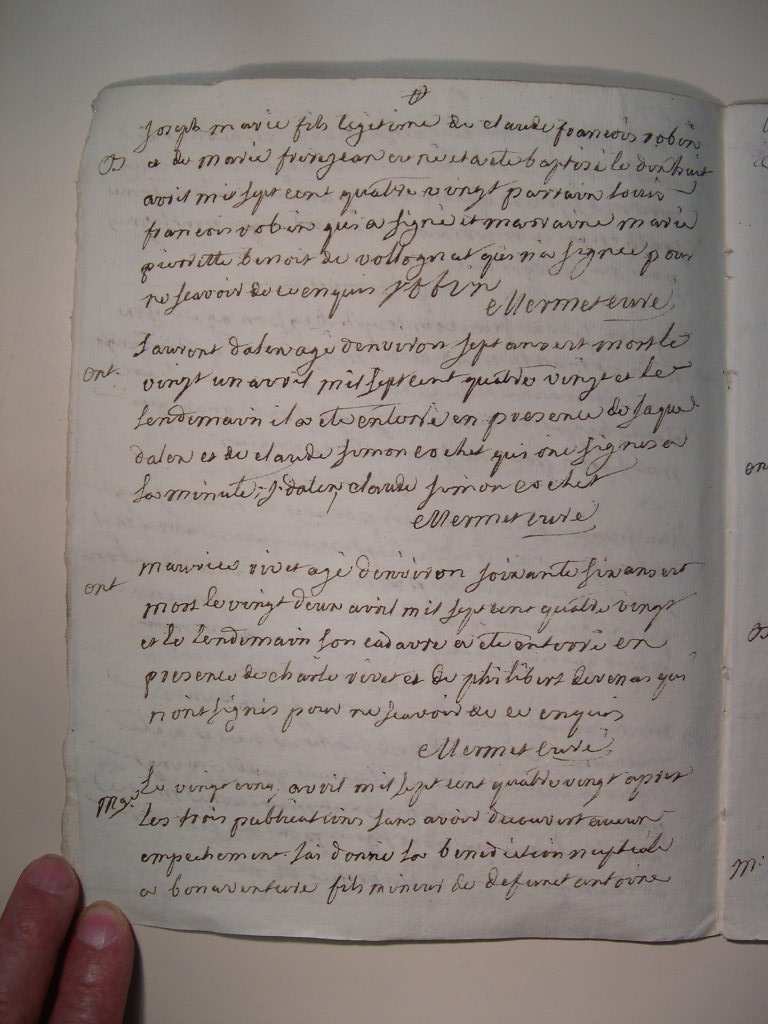 joseph marie fils legitime de claude francois robin
B et de marie frerejean est né et a ete baptisé le dix huit
avril mil sept cent quatre vingt partain louis
francois robin qui a signé et marraine marie
pierrette benoit de volognat qui n'a signee pour
ne scavoir de ce enquis robin
Mermet curé
Laurent dalen agé d'environ sept ans est mort le
ent. vingt un avril mil sept cent quatre vingt et le
lendemain il a ete enterré en presence de jaque
dalen et de claude simon cochet qui ont signes a
la minute, j. dalen, claude simon cochet
Mermet curé
maurice vivet agé d'environ soixante six ans est
ent mort le vingt deux avril mil sept cent quatre vingt
et le lendemain son cadavre a ete enterré en
presence de charle vivet et de philibert devenas qui
n'ont signés pour ne scavoir de ce enquis
Mermet curé
Mge. Le vingt cinq avril mil sept cent quatre vingt apres
les trois publications sans avoir decouvert aucun
empechement j'ai donné la benediction nuptiale
a bonaventure fils mineur de defunct antoine